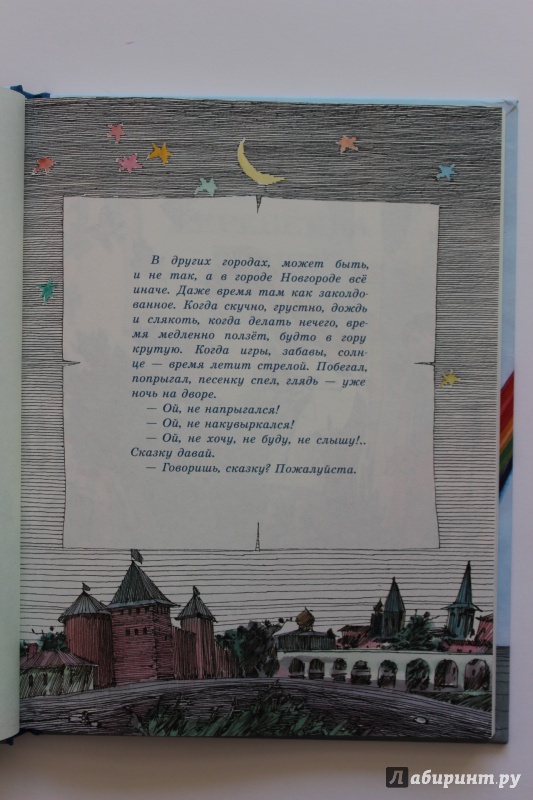 В других городах, может быть,
и не так, а в городе Новгороде всё
иначе. Даже время там как заколдо-
ванное. Когда скучно, грустно, дождь
и слякоть, когда делать нечего, вре-
мя медленно ползёт, будто в гору
крутую. Когда игры, забавы, солн-
це — время летит стрелой. Побегал,
попрыгал, песенку спел, глядь — уже
ночь на дворе.
— Ой, не напрыгался!
— Ой, не накувыркался!
— Ой, не хочу, не буду, не слышу!..
Сказку давай.
— Говоришь, сказку? Пожалуйста.
Лабиринт.ру